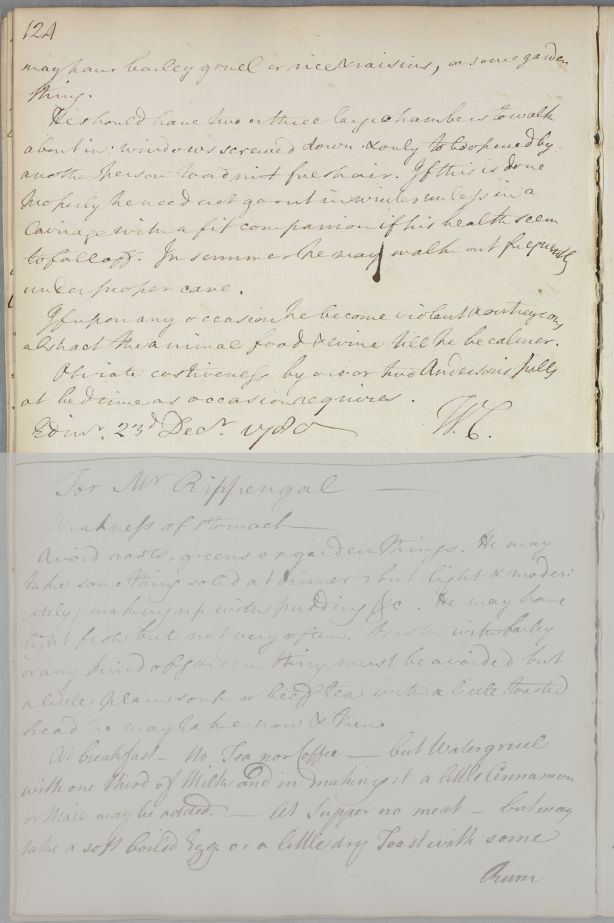 124
may have barley gruel or rice & raisins, or some garden
thing.
He should have two or three large chambers to walk
about in: windows screwed down & only to be opened by
another person to admit fresh air. If this is done
properly he need not go out in winter unless in a
Carriage with a fit companion if his health seem
to fall off. In summer he may walk out frequently
under proper care.
If upon any occasion he become violent & outrageous
abstract the animal food & wine till he be calmer.
Obviate costiveness by one or two Anderson's pills
at bedtime as occasion requires.
Edinr. 23d Decr. 1780 W.C.
For Mr Rippengal
Weakness of stomach
Avoid roots, greens or garden things. He may
take something solid at dinner, but light & moder:
:ately; making up with pudding &c. He may have
light fish but not very often. Broth with barley
or any kind of garden thing must be avoided but
a little plain soup or beef tea with a little toasted
bread he may take now & then
At breakfast — No Tea nor Coffee — but Water gruel
with one third of Milk and in making it a little Cinnamon
or Mace may be added. — At Supper no meat — but may
take a soft boiled Egg or a little dry Toast with some